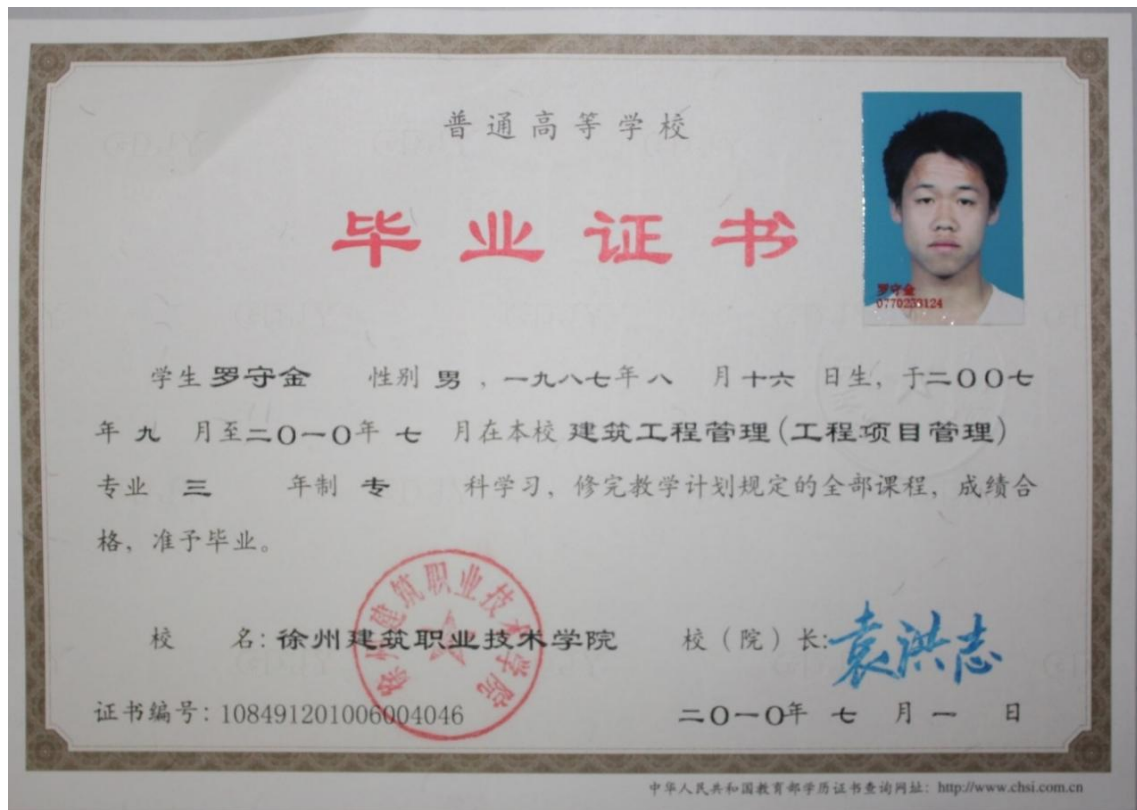 普通高等学校
毕业证书
罗守金
0770233124
学生 罗守金 性别 男 , 一九八七年 八 月 十六 日生, 于二〇〇七
年 九 月至二〇一〇年 七 月在本校 建筑工程管理(工程项目管理)
专业 三 年制 专 科学习, 修完教学计划规定的全部课程, 成绩合
格, 准予毕业。
徐州建筑职业技术学院
校 名: 徐州建筑职业技术学院 校(院)长: 袁洪志
证书编号: 108491201006004046 二〇一〇年 七 月 一 日
中华人民共和国教育部学历证书查询网址: http://www.chsi.com.cn